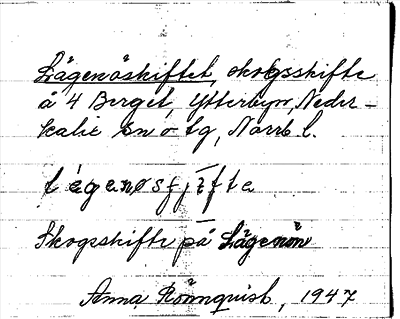 Lågenöskiftet, skogsskifte
å 4 Berget, Ytterbyn, Neder-
kalix sn o tg, Norrb l.
lågenøsʃjifte
Skogsskifte på Lågenön
Anna Rönnquist, 1947